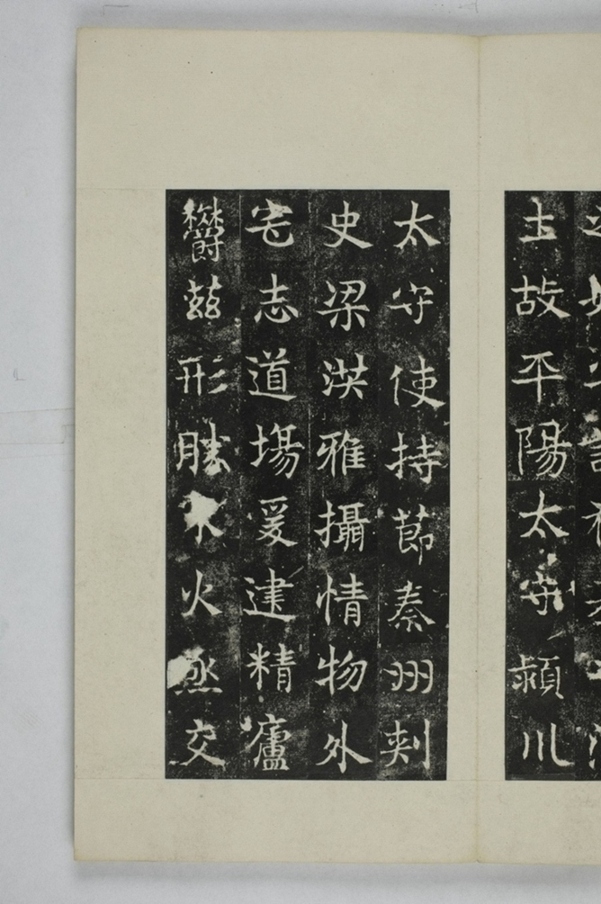 士故平陽太守潁川
太守使持節秦州刺
史梁洪雅攝情物外
宅志道場爰建精廬
欝茲形勝火烝交